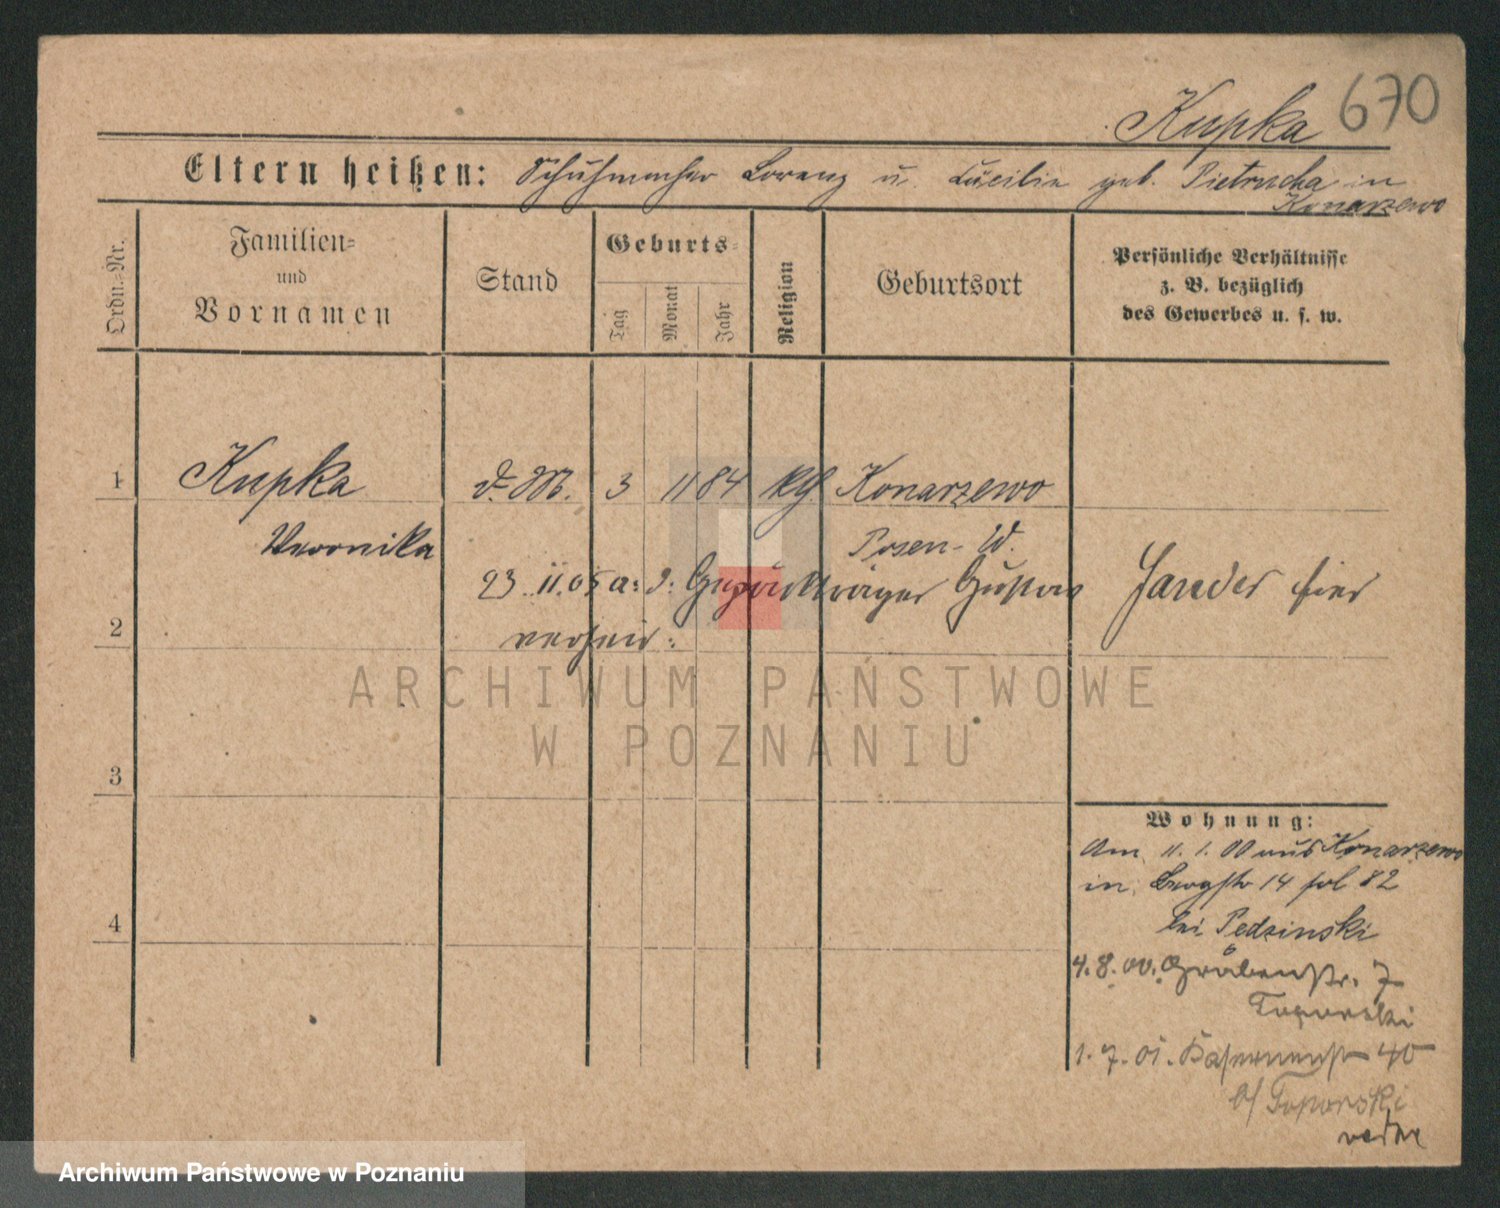 Kupka 670
Eltern heißen: Schuhmacher Lorenz u. Cäcilie geb. Pietrucha in
Konarzewo
Ordn.-Nr.
Familien-
und
Vornamen
Stand
Geburts-
Tag
Monat
Jahr
Religion
Geburtsort
Persönliche Verhältnisse
z. B. bezüglich
des Gewerbes u. s. w.
1 Kupka d. M. 3 11 84 kth Konarzewo
Veronika Posen-W.
23.11.05 a: d. Gepäckträger Gustav Jander hier
2 verheir:
3
Wohnung:
Am 11.1.00 aus Konarzewo
in Bergstr 14 fol 82
4 bei Pedzinski
4.8.00. Grabenstr. 7
Toporski
1.7.01. Kasernenstr 40
b/ Toporski
ARCHIWUM PAŃSTWOWE
W POZNANIU
Archiwum Państwowe w Poznaniu